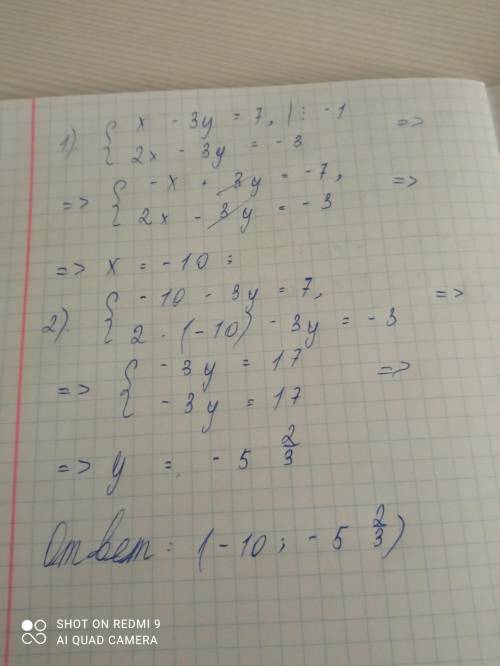 1) { x - 3y = 7, | : -1 =>
2x - 3y = -3
=> { -x + 3y = -7, =>
2x - 3y = -3
=> x = -10 ;
2) { -10 - 3y = 7, =>
2 · (-10) - 3y = -3
=> { -3y = 17 =>
-3y = 17
=> y = -5 2/3
Ответ: (-10 ; -5 2/3)
SHOT ON REDMI 9
AI QUAD CAMERA